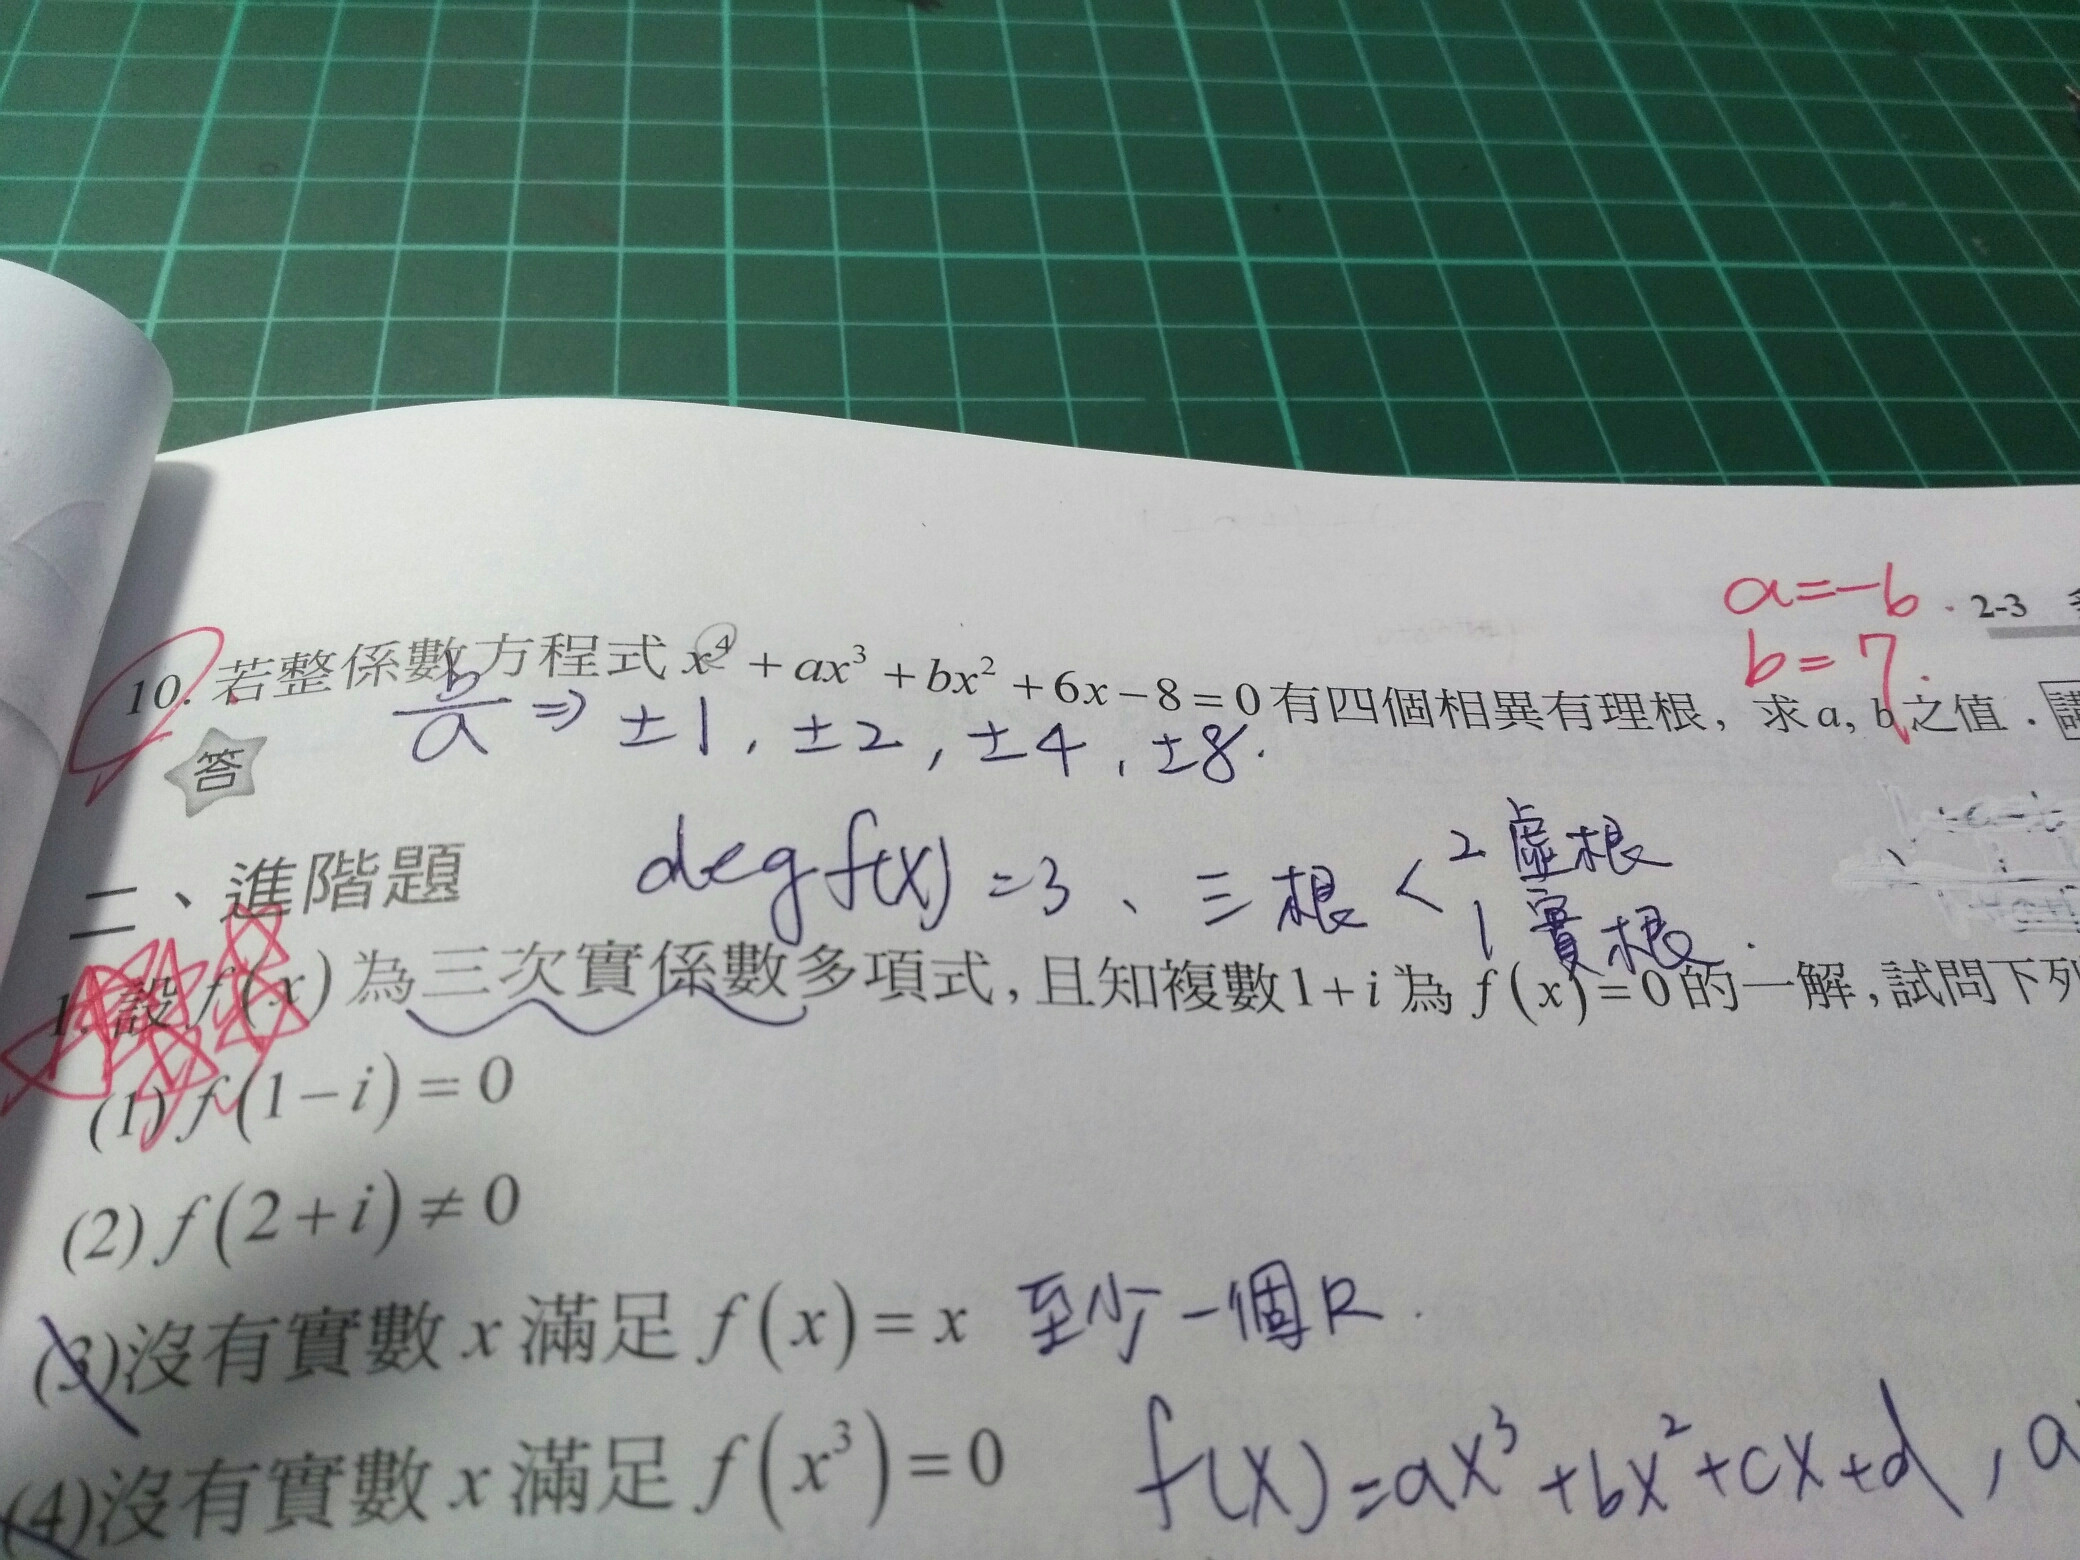 a=-6. 2-3
b=7.
10. 若整係數方程式 x⁴+ax³+bx²+6x-8=0 有四個相異有理根, 求 a, b 之值.
b/a ⇒ ±1, ±2, ±4, ±8.
答
二、進階題
deg f(x)=3、三根<2虛根 1實根.
1. 設 f(x) 為三次實係數多項式, 且知複數 1+i 為 f(x)=0 的一解, 試問下列
(1) f(1-i)=0
(2) f(2+i)≠0
(3) 沒有實數 x 滿足 f(x)=x 至少一個R.
(4) 沒有實數 x 滿足 f(x³)=0
f(x)=ax³+bx²+cx+d, a